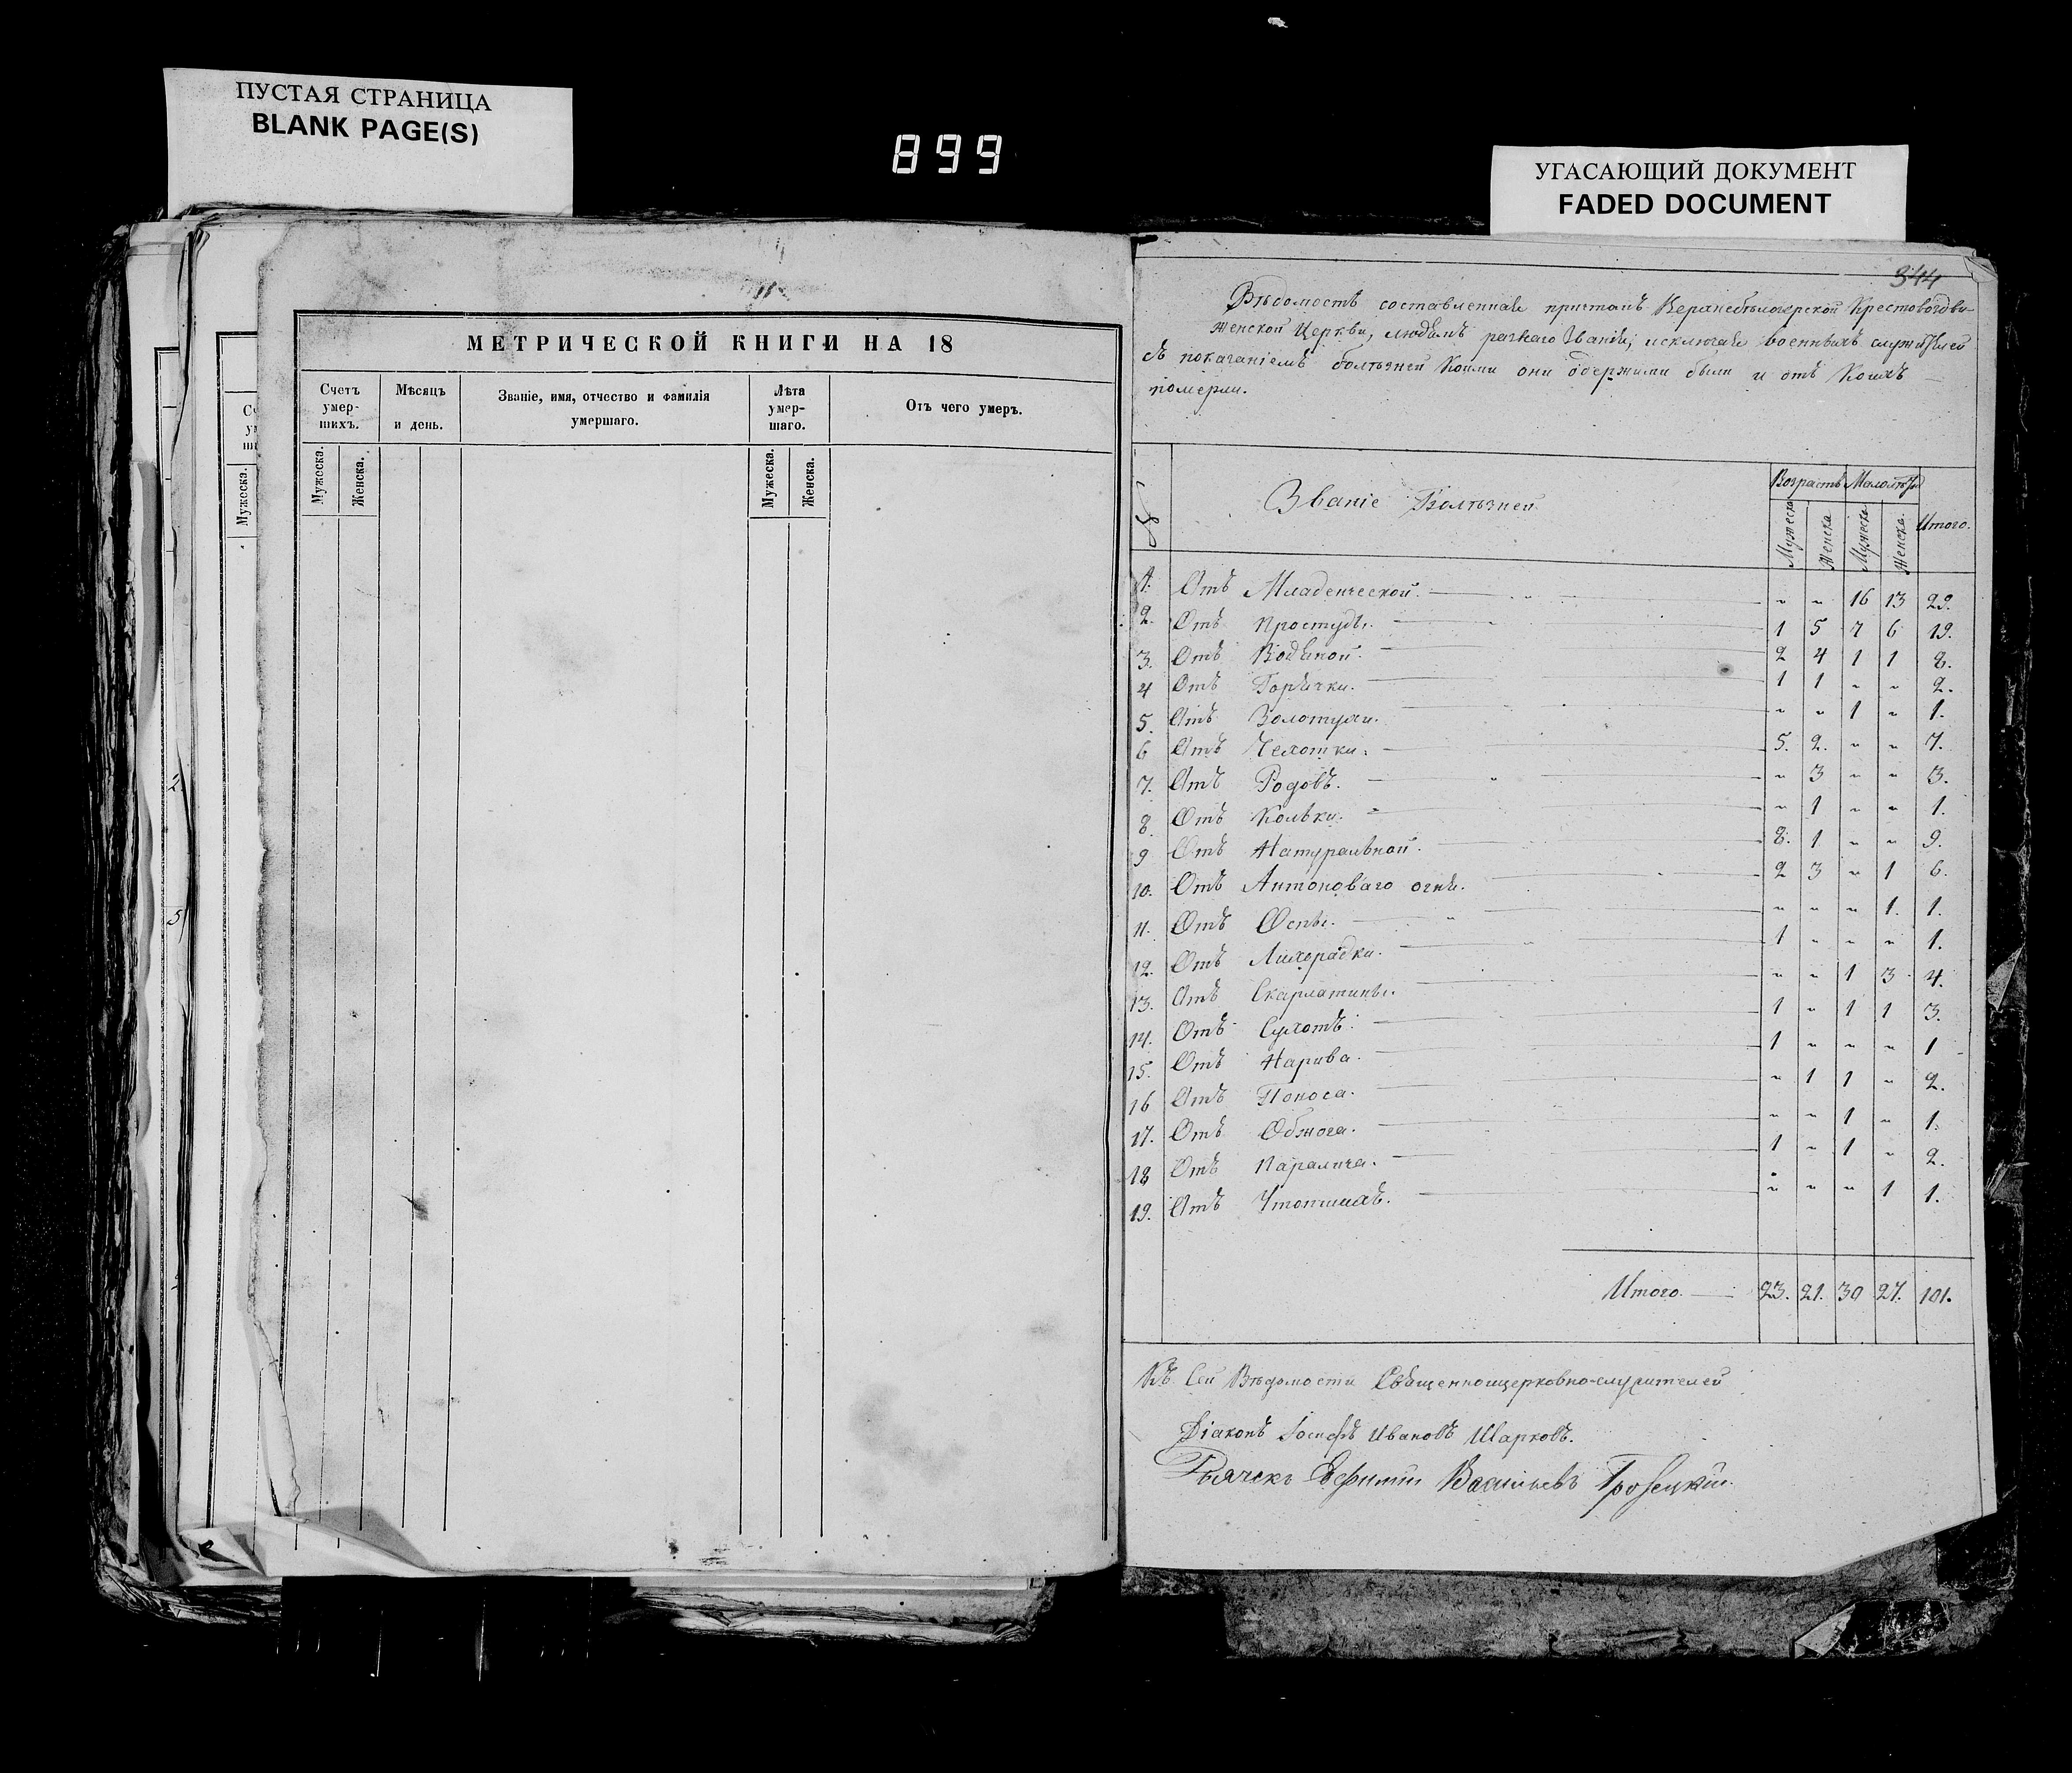 ПУСТАЯ СТРАНИЦА
BLANK PAGE(S)
899
УГАСАЮЩИЙ ДОКУМЕНТ
FADED DOCUMENT
МЕТРИЧЕСКОЙ КНИГИ НА 18
Счетъ умер-шихъ. Мѣсяцъ и день. Званіе, имя, отчество и фамилія умершаго. Лѣта умер-шаго. Отъ чего умеръ.
Мужеска. Женска. Мужеска. Женска.
344
Вѣдомость составленная причтомъ Верхнебѣлозерской Крестовоздви-
женской Церкви, людямъ разнаго званія, исключая военныхъ служителей
съ показаніемъ болѣзней коими они одержими были и отъ коихъ
померли.
№ Званіе Болѣзней Возрастъ Малолѣтн Итого.
Мужеска Женска Мужеска Женска.
1. Отъ Младенческой. „ „ 16 13 29.
2. Отъ Простуды. 1 5 7 6 19.
3. Отъ Водяной. 2 4 1 1 8.
4 Отъ Горячки. 1 1 „ „ 2.
5. Отъ Золотухи. „ „ 1 „ 1.
6 Отъ Чехотки. 5. 2. „ „ 7.
7. Отъ Родовъ. „ 3 „ „ 3.
8. Отъ Кольки. „ 1 „ „ 1.
9 Отъ Натуральной. 8. 1 „ „ 9.
10. Отъ Антоноваго огня. 2 3 „ 1 6.
11. Отъ Оспы. „ „ „ 1. 1.
12. Отъ Лихорадки. 1 „ „ „ 1.
13. Отъ Скарлатины. „ „ 1 3 4.
14. Отъ Сухотъ. 1 „ 1 1 3.
15. Отъ Нарыва. 1 „ „ „ 1
16 Отъ Поноса. „ 1 1 „ 2.
17. Отъ Обжога. „ „ 1 „ 1.
18 Отъ Паралича. 1 „ 1 „ 2.
19. Отъ Утопшихъ. „ „ „ 1 1.
Итого. 23. 21. 30 27. 101.
Къ Сей Вѣдомости Священноицерковно-служителей
Діаконъ Іосифъ Ивановъ Шарковъ.
Дьячекъ Ефимій Васильевъ